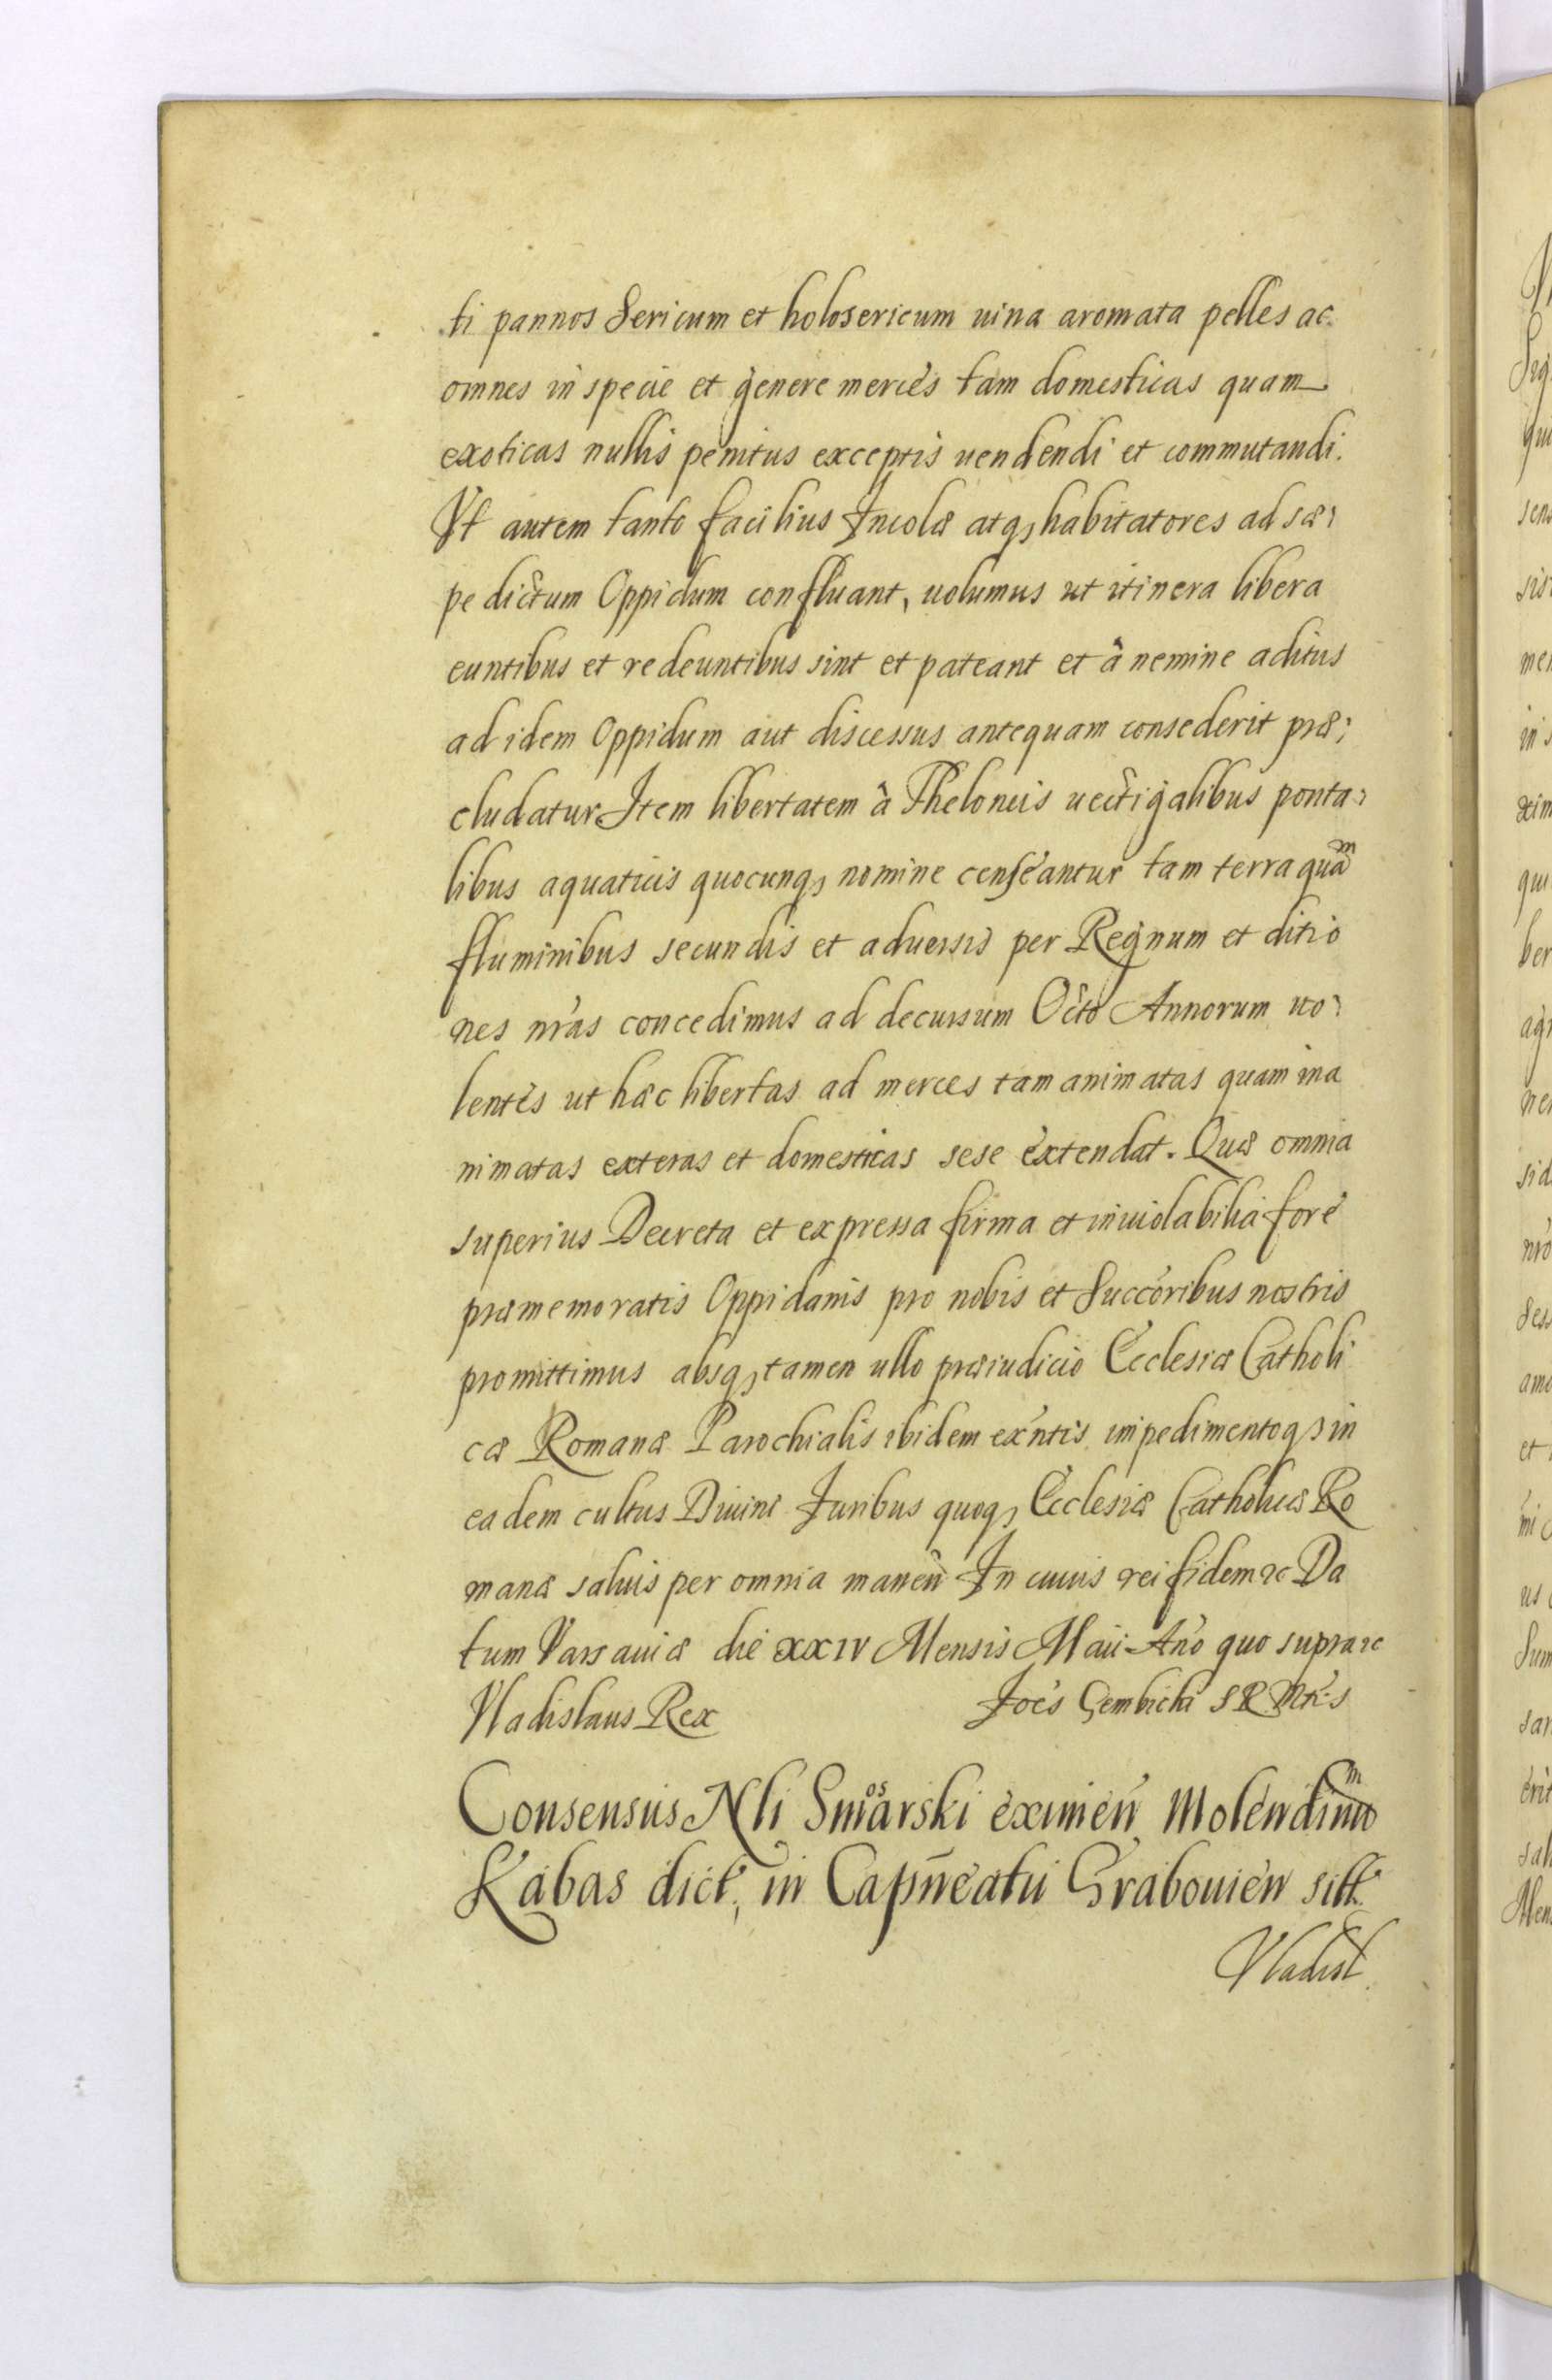 ti pannos Sericum et holosericum uina aromata pelles ac
omnes in specie et genere merces tam domesticas quam
exoticas nullis penitus exceptis uendendi et commutandi.
Vt autem tanto facilius Incolæ atq, habitatores ad sæ:
pe dictum Oppidum confluant, uolumus ut itinera libera
euntibus et redeuntibus sint et pateant et à nemine aditus
ad idem Oppidum aut discessus antequam consederit præ:
cludatur Item libertatem à Theloneis uectigalibus ponta:
libus aquaticis quocunq, nomine censeantur tam terra quam
fluminibus secundis et aduersis per Regnum et ditio
nes nras concedimus ad decursum Octo Annorum uo:
lentes ut hæc libertas ad merces tam animatas quam ina
nimatas exteras et domesticas sese extendat. Quæ omnia
superius Decreta et expressa firma et inuiolabilia fore
præmemoratis Oppidanis pro nobis et Succoribus nostris
promittimus absq, tamen ullo præiudicio Ecclesiæ Catholi
cæ Romanæ Parochialis ibidem exntis impedimentoq, in
eadem cultus Diuini Iuribus quoq, Ecclesiæ Catholicæ Ro
manæ saluis per omnia manen In cuius rei fidem &c Da
tum Varsauiæ die XXIV Mensis Maii Ano quo supra &c
Vladislaus Rex Joes Gembicki S R Mtis
Consensus Nli eximen Molendinum
Kabas dict, in Capneatu Grabouien sitt.
Vladisl